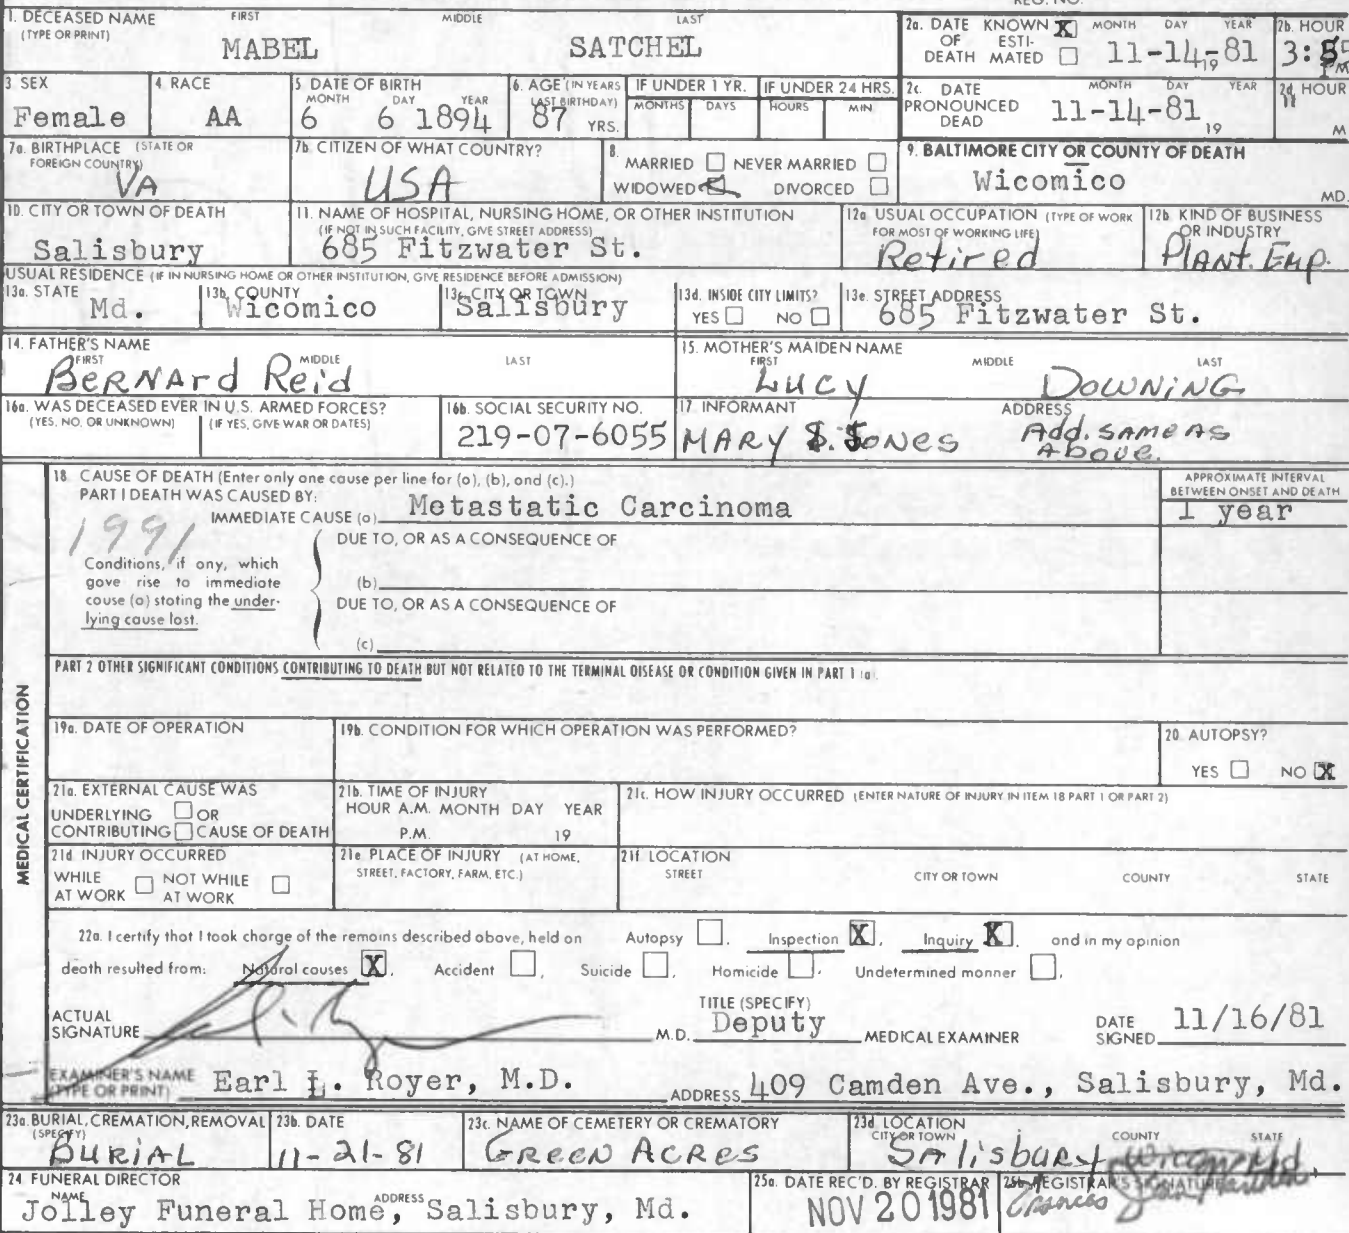 REG. NO.
1. DECEASED NAME FIRST MIDDLE LAST
(TYPE OR PRINT)
MABEL SATCHEL
2a. DATE KNOWN X MONTH DAY YEAR
OF ESTI-
DEATH MATED 11-14-81
19
2b. HOUR
3:
PM
3. SEX
Female
4. RACE
AA
5. DATE OF BIRTH
MONTH DAY YEAR
6 6 1894
6. AGE (IN YEARS
LAST BIRTHDAY)
87 YRS.
IF UNDER 1 YR.
MONTHS DAYS
IF UNDER 24 HRS.
HOURS MIN
2c. DATE MONTH DAY YEAR
PRONOUNCED
DEAD 11-14-81
19
2d. HOUR
"
M
7a. BIRTHPLACE (STATE OR
FOREIGN COUNTRY)
VA
7b. CITIZEN OF WHAT COUNTRY?
USA
8.
MARRIED NEVER MARRIED
WIDOWED DIVORCED
9. BALTIMORE CITY OR COUNTY OF DEATH
Wicomico
MD.
10. CITY OR TOWN OF DEATH
Salisbury
11. NAME OF HOSPITAL, NURSING HOME, OR OTHER INSTITUTION
(IF NOT IN SUCH FACILITY, GIVE STREET ADDRESS)
685 Fitzwater St.
12a USUAL OCCUPATION (TYPE OF WORK
FOR MOST OF WORKING LIFE)
Retired
12b. KIND OF BUSINESS
OR INDUSTRY
PLANT. EMP.
USUAL RESIDENCE (IF IN NURSING HOME OR OTHER INSTITUTION, GIVE RESIDENCE BEFORE ADMISSION)
13a. STATE
Md.
13b. COUNTY
Wicomico
13c. CITY OR TOWN
Salisbury
13d. INSIDE CITY LIMITS?
YES NO
13e. STREET ADDRESS
685 Fitzwater St.
14. FATHER'S NAME
FIRST MIDDLE LAST
BERNARd Reid
15. MOTHER'S MAIDEN NAME
FIRST MIDDLE LAST
LUCY DOWNING
16a. WAS DECEASED EVER IN U.S. ARMED FORCES?
(YES, NO, OR UNKNOWN) (IF YES, GIVE WAR OR DATES)
16b. SOCIAL SECURITY NO.
219-07-6055
17. INFORMANT ADDRESS
MARY S. JONES Add. SAME AS
Above.
MEDICAL CERTIFICATION
18. CAUSE OF DEATH (Enter only one cause per line for (a), (b), and (c).)
PART I DEATH WAS CAUSED BY:
IMMEDIATE CAUSE (a) Metastatic Carcinoma
APPROXIMATE INTERVAL
BETWEEN ONSET AND DEATH
1 year
1991
Conditions, if any, which
gave rise to immediate
cause (a) stating the under-
lying cause last.
DUE TO, OR AS A CONSEQUENCE OF
(b)
DUE TO, OR AS A CONSEQUENCE OF
(c)
PART 2 OTHER SIGNIFICANT CONDITIONS CONTRIBUTING TO DEATH BUT NOT RELATED TO THE TERMINAL DISEASE OR CONDITION GIVEN IN PART 1 (a).
19a. DATE OF OPERATION
19b. CONDITION FOR WHICH OPERATION WAS PERFORMED?
20. AUTOPSY?
YES NO X
21a. EXTERNAL CAUSE WAS
UNDERLYING OR
CONTRIBUTING CAUSE OF DEATH
21b. TIME OF INJURY
HOUR A.M. MONTH DAY YEAR
P.M. 19
21c. HOW INJURY OCCURRED (ENTER NATURE OF INJURY IN ITEM 18 PART 1 OR PART 2)
21d INJURY OCCURRED
WHILE NOT WHILE
AT WORK AT WORK
21e PLACE OF INJURY (AT HOME,
STREET, FACTORY, FARM, ETC.)
21f. LOCATION
STREET CITY OR TOWN COUNTY STATE
22a. I certify that I took charge of the remains described above, held on Autopsy , Inspection X , Inquiry X , and in my opinion
death resulted from: Natural causes X , Accident , Suicide , Homicide , Undetermined manner .
ACTUAL
SIGNATURE M.D.
TITLE (SPECIFY)
Deputy MEDICAL EXAMINER
DATE
SIGNED 11/16/81
EXAMINER'S NAME
(TYPE OR PRINT) Earl L. Royer, M.D.
ADDRESS 409 Camden Ave., Salisbury, Md.
23a. BURIAL, CREMATION, REMOVAL
(SPECIFY)
BURIAL
23b. DATE
11-21-81
23c. NAME OF CEMETERY OR CREMATORY
GREEN ACRES
23d. LOCATION
CITY OR TOWN COUNTY STATE
SAlisbury Wicom Md.
24. FUNERAL DIRECTOR
NAME ADDRESS
Jolley Funeral Home, Salisbury, Md.
25a. DATE REC'D. BY REGISTRAR
NOV 20 1981
25b. REGISTRAR'S SIGNATURE